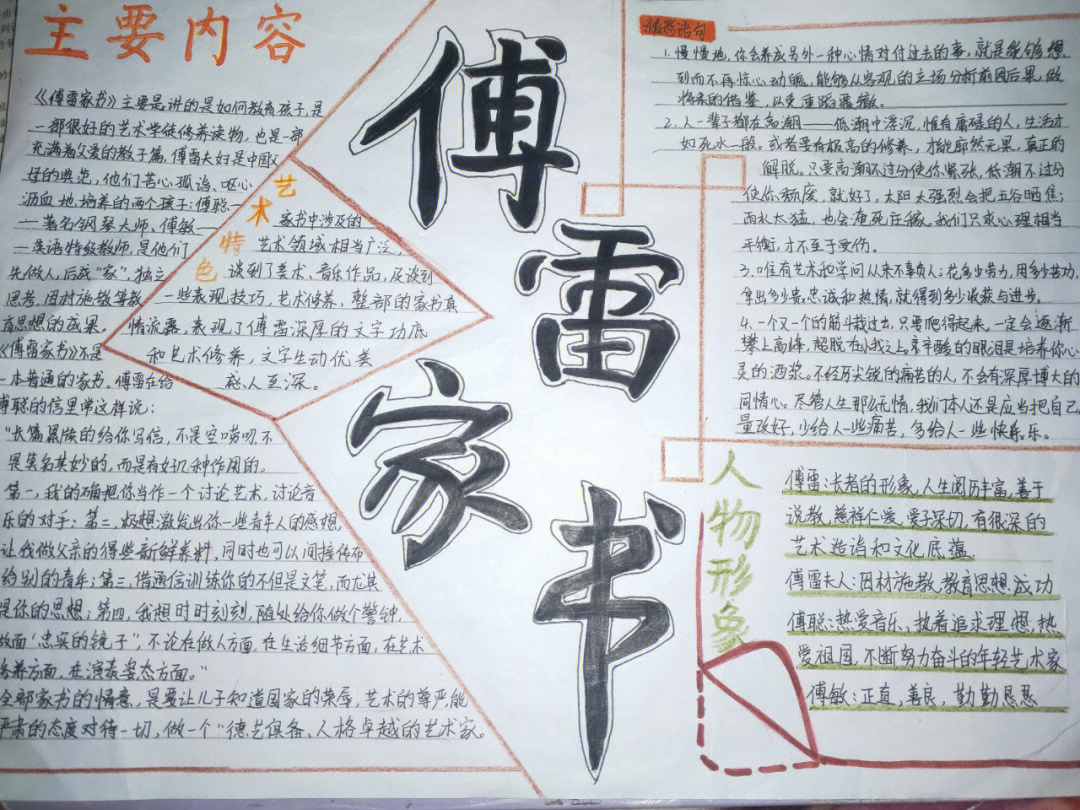 主要内容
《傅雷家书》主要是讲的是如何教育孩子,是
一部很好的艺术学徒修养读物,也是一部
充满着父爱的教子篇,傅雷夫妇是中国父
母的典范,他们苦心孤诣、呕心
沥血地培养的两个孩子:傅聪—
—著名钢琴大师,傅敏—
—英语特级教师,是他们
先做人,后成“家”,独立
思考,因材施教等教
育思想的成果。
《傅雷家书》不是
一本普通的家书。傅雷在给
傅聪的信里常这样说:
“长篇累牍的给你写信,不是空唠叨,不
是莫名其妙的,而是有好几种作用的。
第一,我的确把你当作一个讨论艺术,讨论音
乐的对手;第二,极想激发出你一些青年人的感想,
让我做父亲的得些新鲜养料,同时也可以间接传布
给别的青年;第三,借通信训练你的不但是文笔,而尤其
是你的思想;第四,我想时时刻刻,随处给你做个警钟,
做面‘忠实的镜子’,不论在做人方面,在生活细节方面,在艺术
修养方面,在演奏姿态方面。”
全部家书的情意,是要让儿子知道国家的荣辱,艺术的尊严,能
严肃的态度对待一切,做一个“德艺俱备、人格卓越的艺术家。
艺术特色
家书中涉及的
艺术领域相当广泛,
谈到了美术、音乐作品,及谈到
一些表现技巧,艺术修养,整部的家书真
情流露,表现了傅雷深厚的文字功底
和艺术修养,文字生动优美
感人至深。
傅雷家书
精彩语句
1.慢慢地,你会养成另外一种心情对付过去的事,就是能够想
到而不再惊心动魄,能够从客观的立场分析前因后果,做
将来的借鉴,以免重蹈覆辙。
2.人一辈子都在高潮——低潮中浮沉,惟有庸碌的人,生活才
如死水一般。或者要有极高的修养,才能廓然无累,真正的
解脱。只要高潮不过分使你紧张,低潮不过分
使你颓废,就好了。太阳太强烈会把五谷晒焦;
雨水太猛,也会淹死庄稼。我们只求心理相当
平衡,才不至于受伤。
3.唯有艺术和学问从来不辜负人:花多少劳力,用多少苦功,
拿出多少忠诚和热情,就得到多少收获与进步。
4.一个又一个的筋斗栽过去,只要爬得起来,一定会逐渐
攀上高峰,超脱在小我之上。辛酸的眼泪是培养你心
灵的酒浆。不经历尖锐的痛苦的人,不会有深厚博大的
同情心。尽管人生那么无情,我们本人还是应当把自己
量改好,少给人一些痛苦,多给人一些快乐。
人物形象
傅雷:长者的形象,人生阅历丰富,善于
说教,慈祥仁爱,爱子深切,有很深的
艺术造诣和文化底蕴
傅雷夫人:因材施教,教育思想,成功
傅聪:热爱音乐、执着追求理想,热
爱祖国,不断努力奋斗的年轻艺术家
傅敏:正直,善良,勤勤恳恳